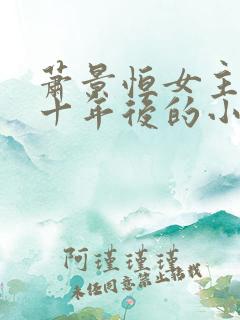 蕭景恒女主
十年後的小
阿瑾瑾瑾
未经同意禁止搭载